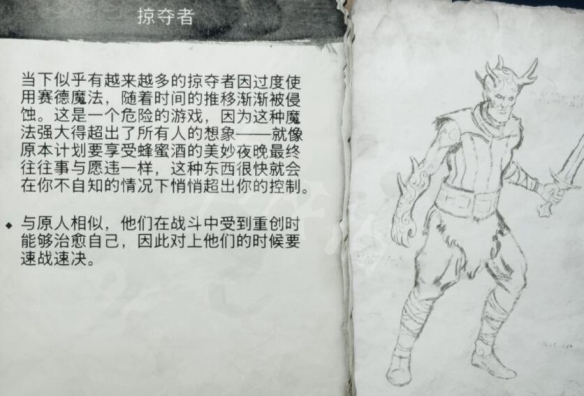 掠夺者
当下似乎有越来越多的掠夺者因过度使
用赛德魔法，随着时间的推移渐渐被侵
蚀。这是一个危险的游戏，因为这种魔
法强大得超出了所有人的想象——就像
原本计划要享受蜂蜜酒的美妙夜晚最终
往往事与愿违一样，这种东西很快就会
在你不自知的情况下悄悄超出你的控制。
◆ 与原人相似，他们在战斗中受到重创时
能够治愈自己，因此对上他们的时候要
速战速决。